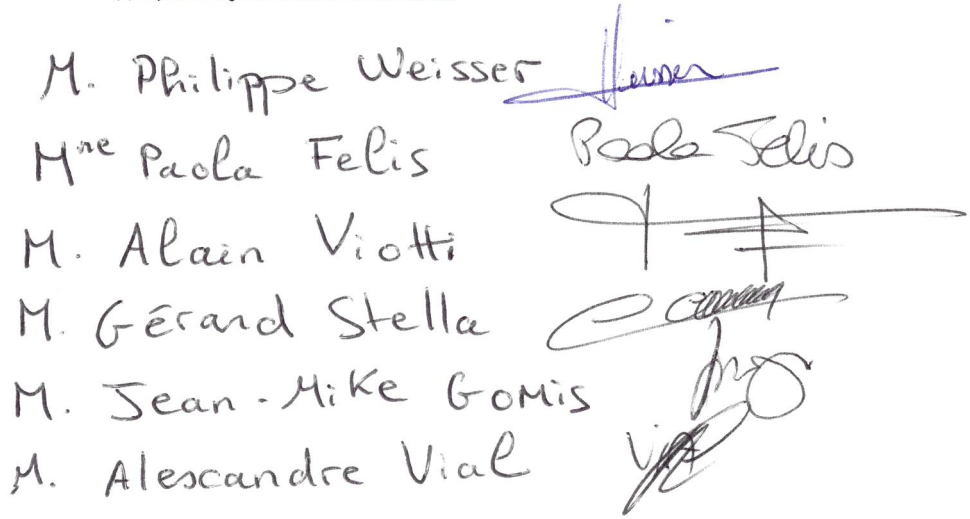 M. Philippe Weisser Weisser
Mme Paola Felis Paola Felis
M. Alain Viotti
M. Gérard Stella
M. Jean-Mike Gomis
M. Alexandre Vial